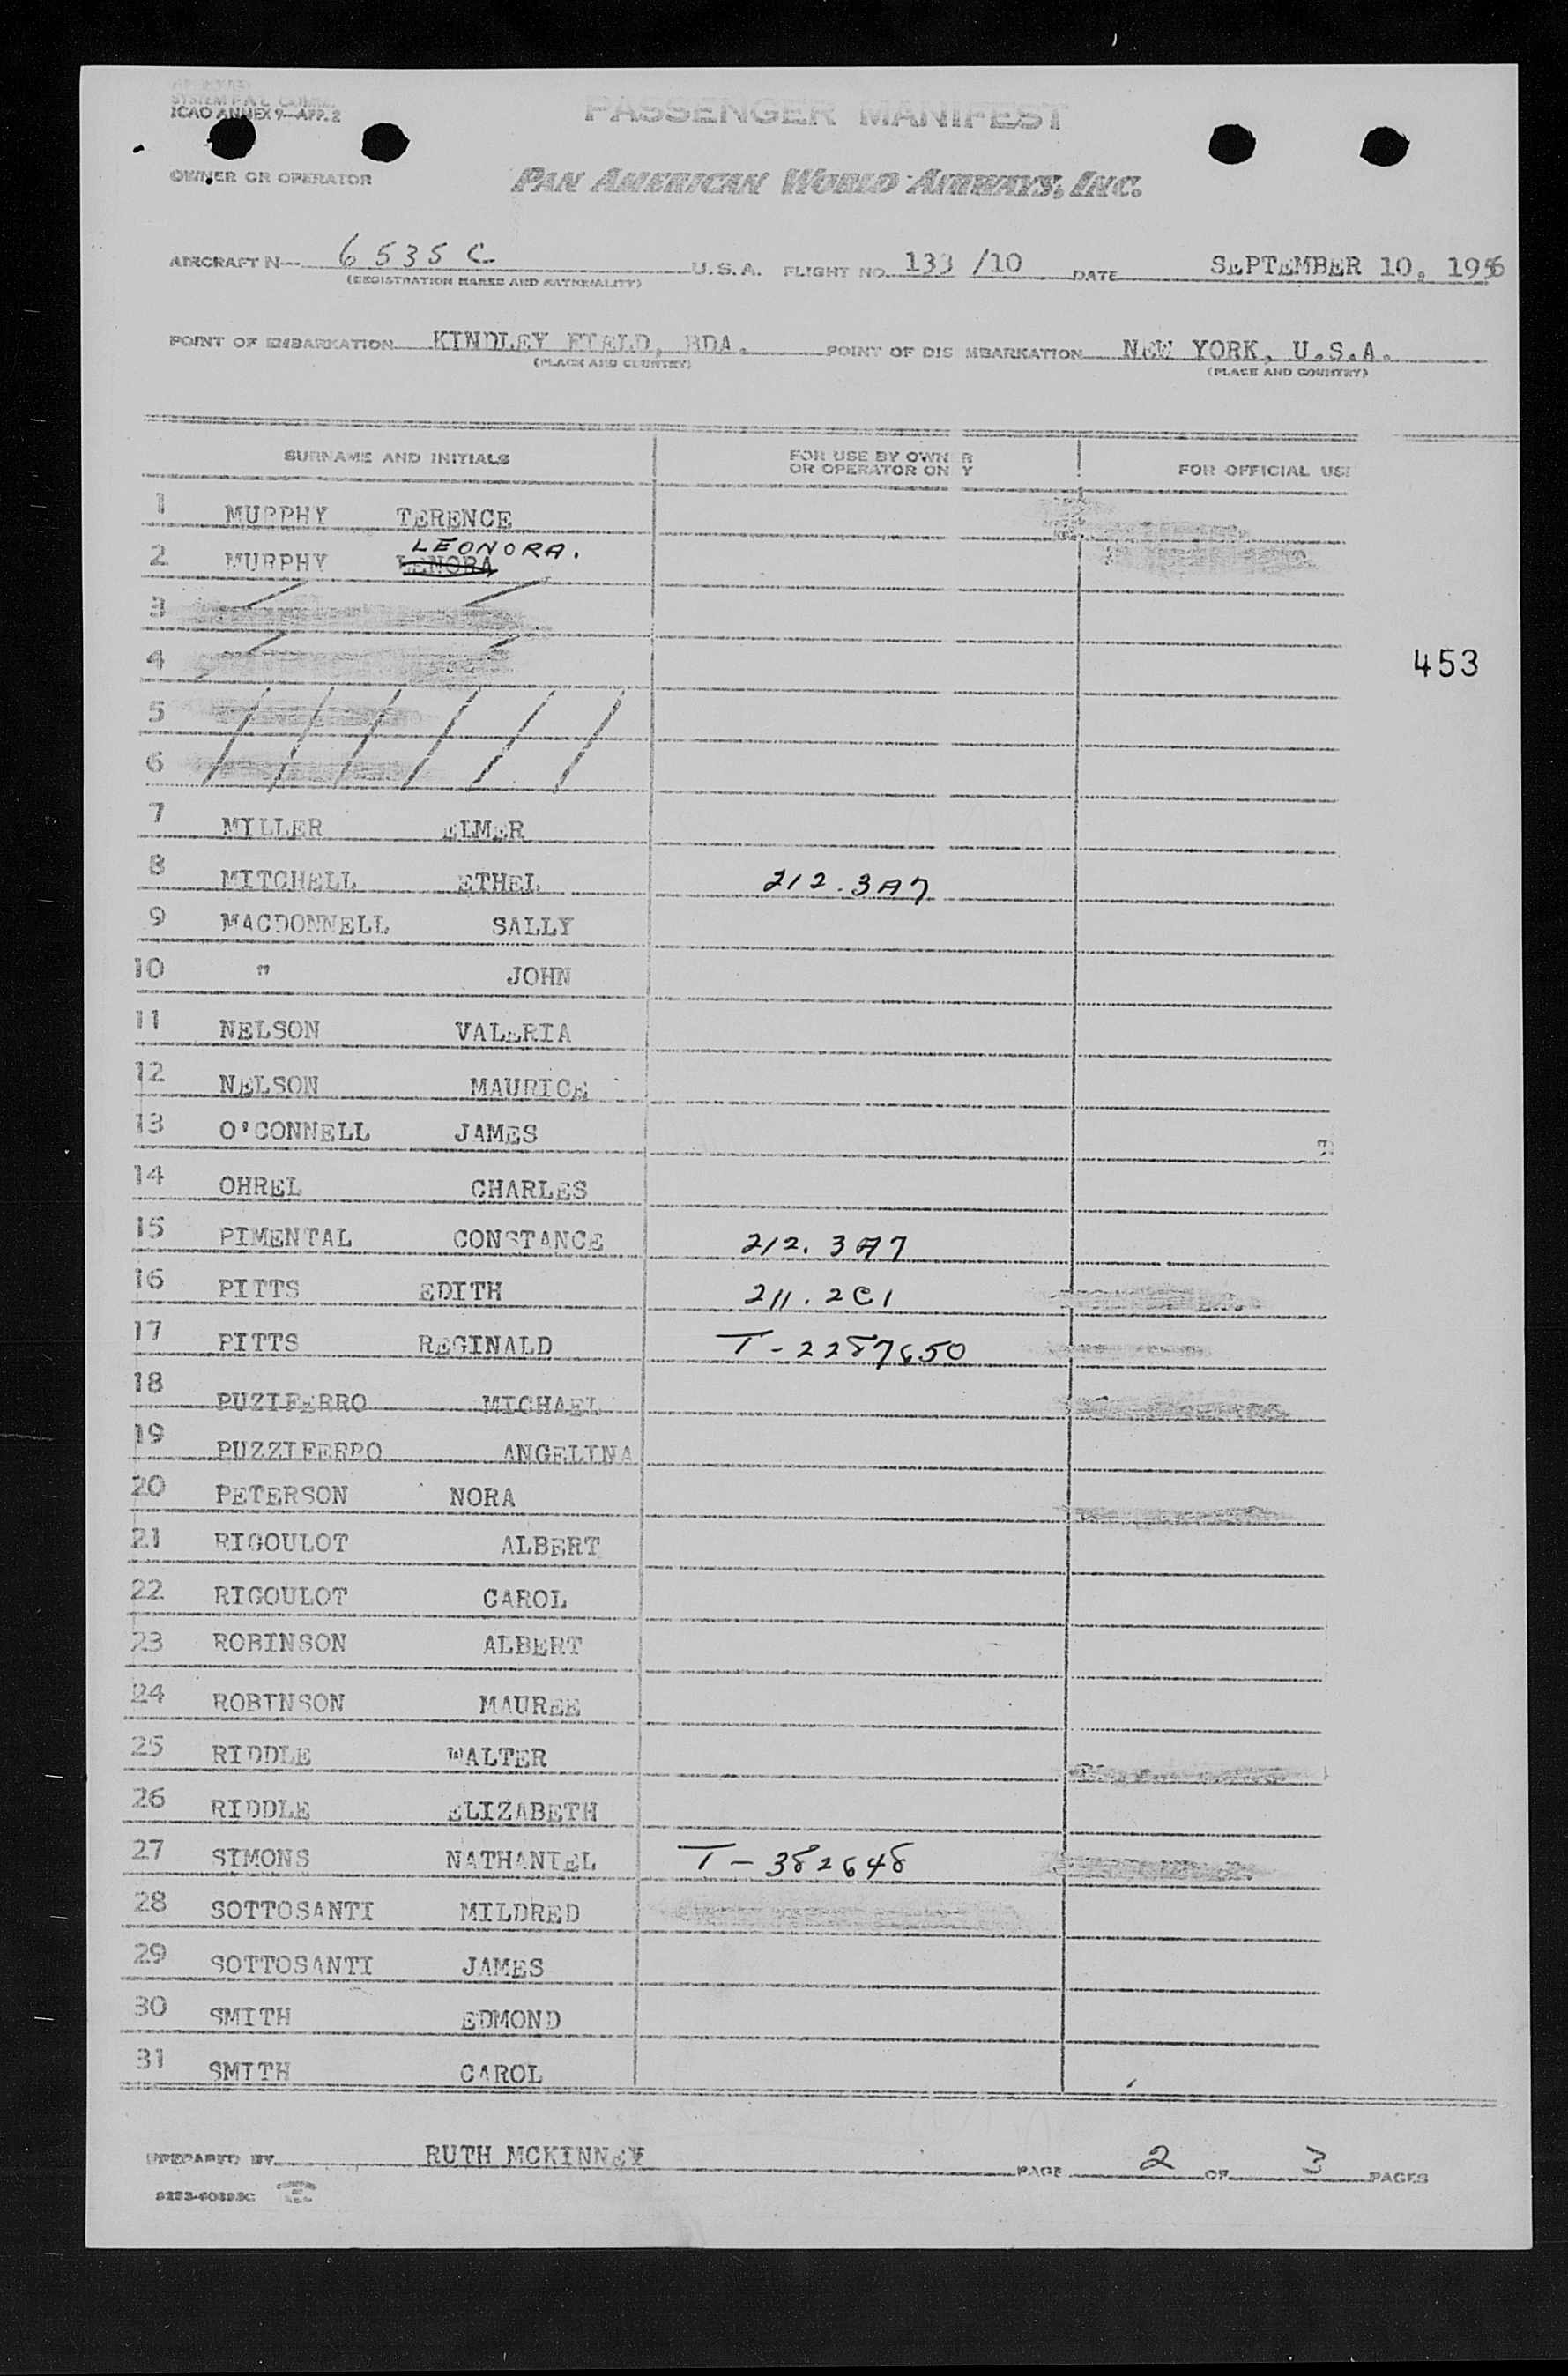 ICAO ANNEX 9—APP. 2
PASSENGER MANIFEST
OWNER OR OPERATOR PAN AMERICAN WORLD AIRWAYS, INC.
AIRCRAFT N— 6535C U.S.A. FLIGHT NO. 133 /10 DATE SEPTEMBER 10, 1956
(REGISTRATION MARKS AND NATIONALITY)
POINT OF EMBARKATION KINDLEY FIELD, BDA. POINT OF DIS MBARKATION NEW YORK, U.S.A.
(PLACE AND COUNTRY) (PLACE AND COUNTRY)
SURNAME AND INITIALS FOR USE BY OWN R OR OPERATOR ON Y FOR OFFICIAL USE
1 MURPHY TERENCE
2 MURPHY LENORA LEONORA.
3
4
453
5
6
7 MILLER ELMER
8 MITCHELL ETHEL 212.3A7
9 MACDONNELL SALLY
10 " JOHN
11 NELSON VALERIA
12 NELSON MAURICE
13 O'CONNELL JAMES
14 OHREL CHARLES
15 PIMENTAL CONSTANCE 212.3A7
16 PITTS EDITH 211.2C1
17 PITTS REGINALD T-2287650
18 PUZIFERRO MICHAEL
19 PUZZIFERRO ANGELINA
20 PETERSON NORA
21 RIGOULOT ALBERT
22 RIGOULOT CAROL
23 ROBINSON ALBERT
24 ROBINSON MAUREE
25 RIDDLE WALTER
26 RIDDLE ELIZABETH
27 SIMONS NATHANIEL T-382648
28 SOTTOSANTI MILDRED
29 SOTTOSANTI JAMES
30 SMITH EDMOND
31 SMITH CAROL
PREPARED BY RUTH MCKINNEY PAGE 2 OF 3 PAGES